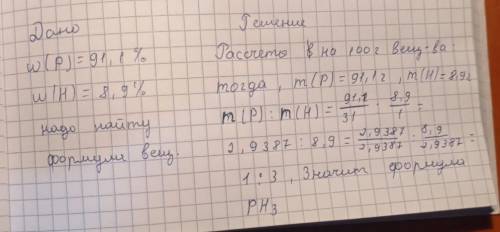 Дано
w(P) = 91,1%
w(H) = 8,9%
надо найту
формули вещ.
Решение
Рассчета на 100г вещ-ва:
тогда, m(P) = 91,1г, m(H) = 8,9г
m(P) : m(H) = 91,1/31 : 8,9/1 =
2,9387 : 8,9 = 2,9387/2,9387 : 8,9/2,9387 =
1 : 3, Значит формула
PH3